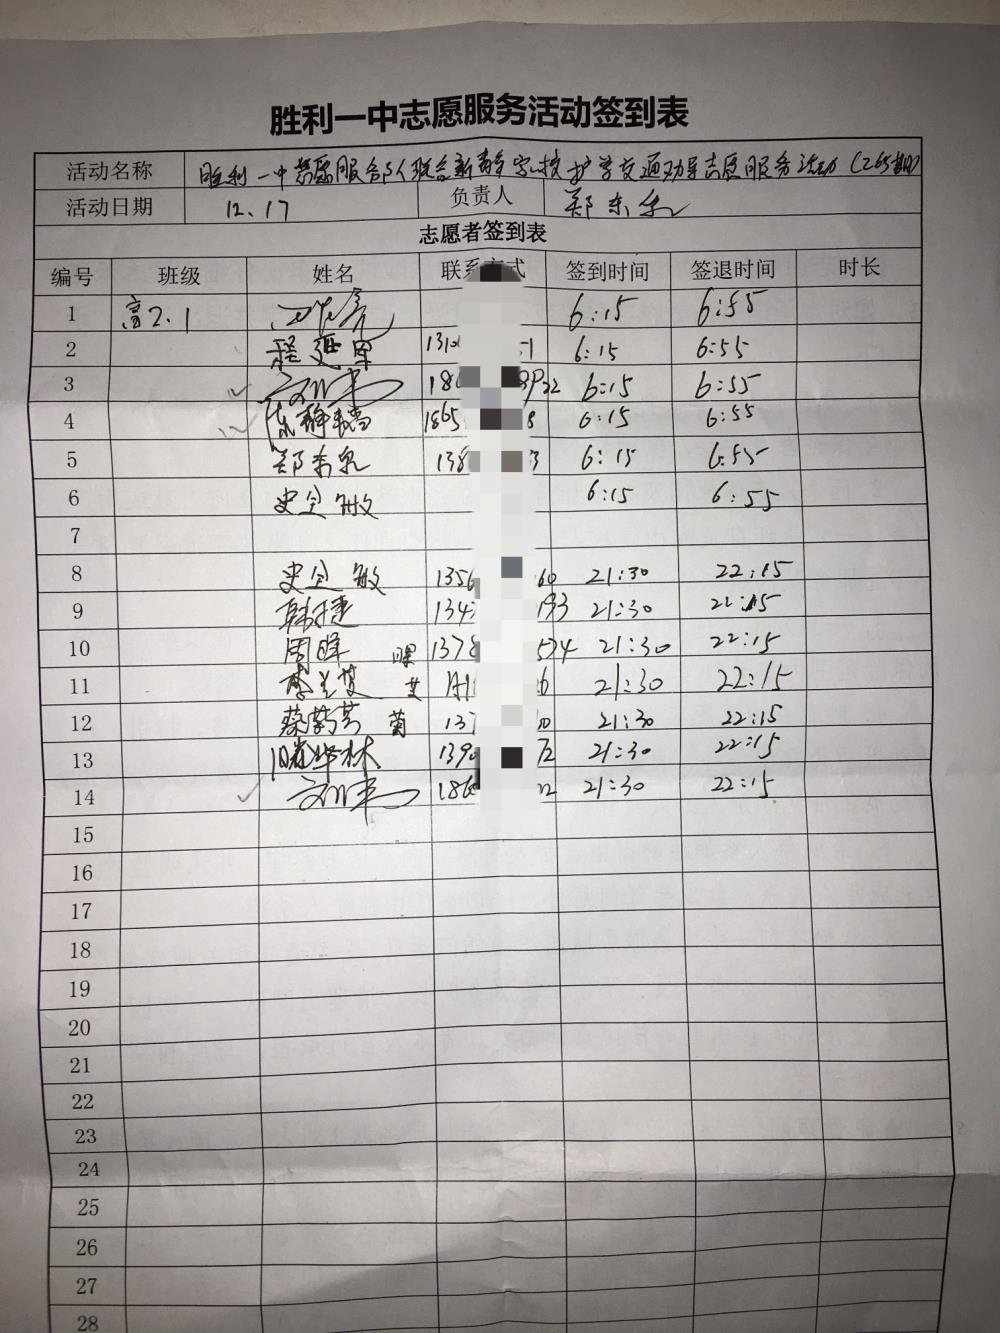 胜利一中志愿服务活动签到表
活动名称 胜利一中志愿服务部联合新青年学校护学交通劝导志愿服务活动(265期)
活动日期 12.17 负责人 郑东泉
志愿者签到表
编号 班级 姓名 联系方式 签到时间 签退时间 时长
1 高2.1 6:15 6:55
2 131 51 6:15 6:55
3 刘伟 18 22 6:15 6:55
4 陈静瑞 1865 8 6:15 6:55
5 郑东泉 138 3 6:15 6:55
6 史全敏 6:15 6:55
7
8 史全敏 1356 60 21:30 22:15
9 韩捷 134 193 21:30 22:15
10 周晖 1378 574 21:30 22:15
11 李兰艾 艾 6 21:30 22:15
12 蔡菊芳 菊 137 0 21:30 22:15
13 华林 1390 72 21:30 22:15
14 刘伟 186 22 21:30 22:15
15
16
17
18
19
20
21
22
23
24
25
26
27
28